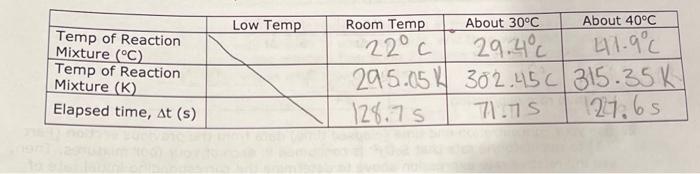 Low Temp Room Temp About 30°C About 40°C
Temp of Reaction Mixture (°C) 22°C 29.4°C 41.9°C
Temp of Reaction Mixture (K) 295.05K 302.45C 315.35K
Elapsed time, Δt (s) 128.7s 71.7s 127.6s